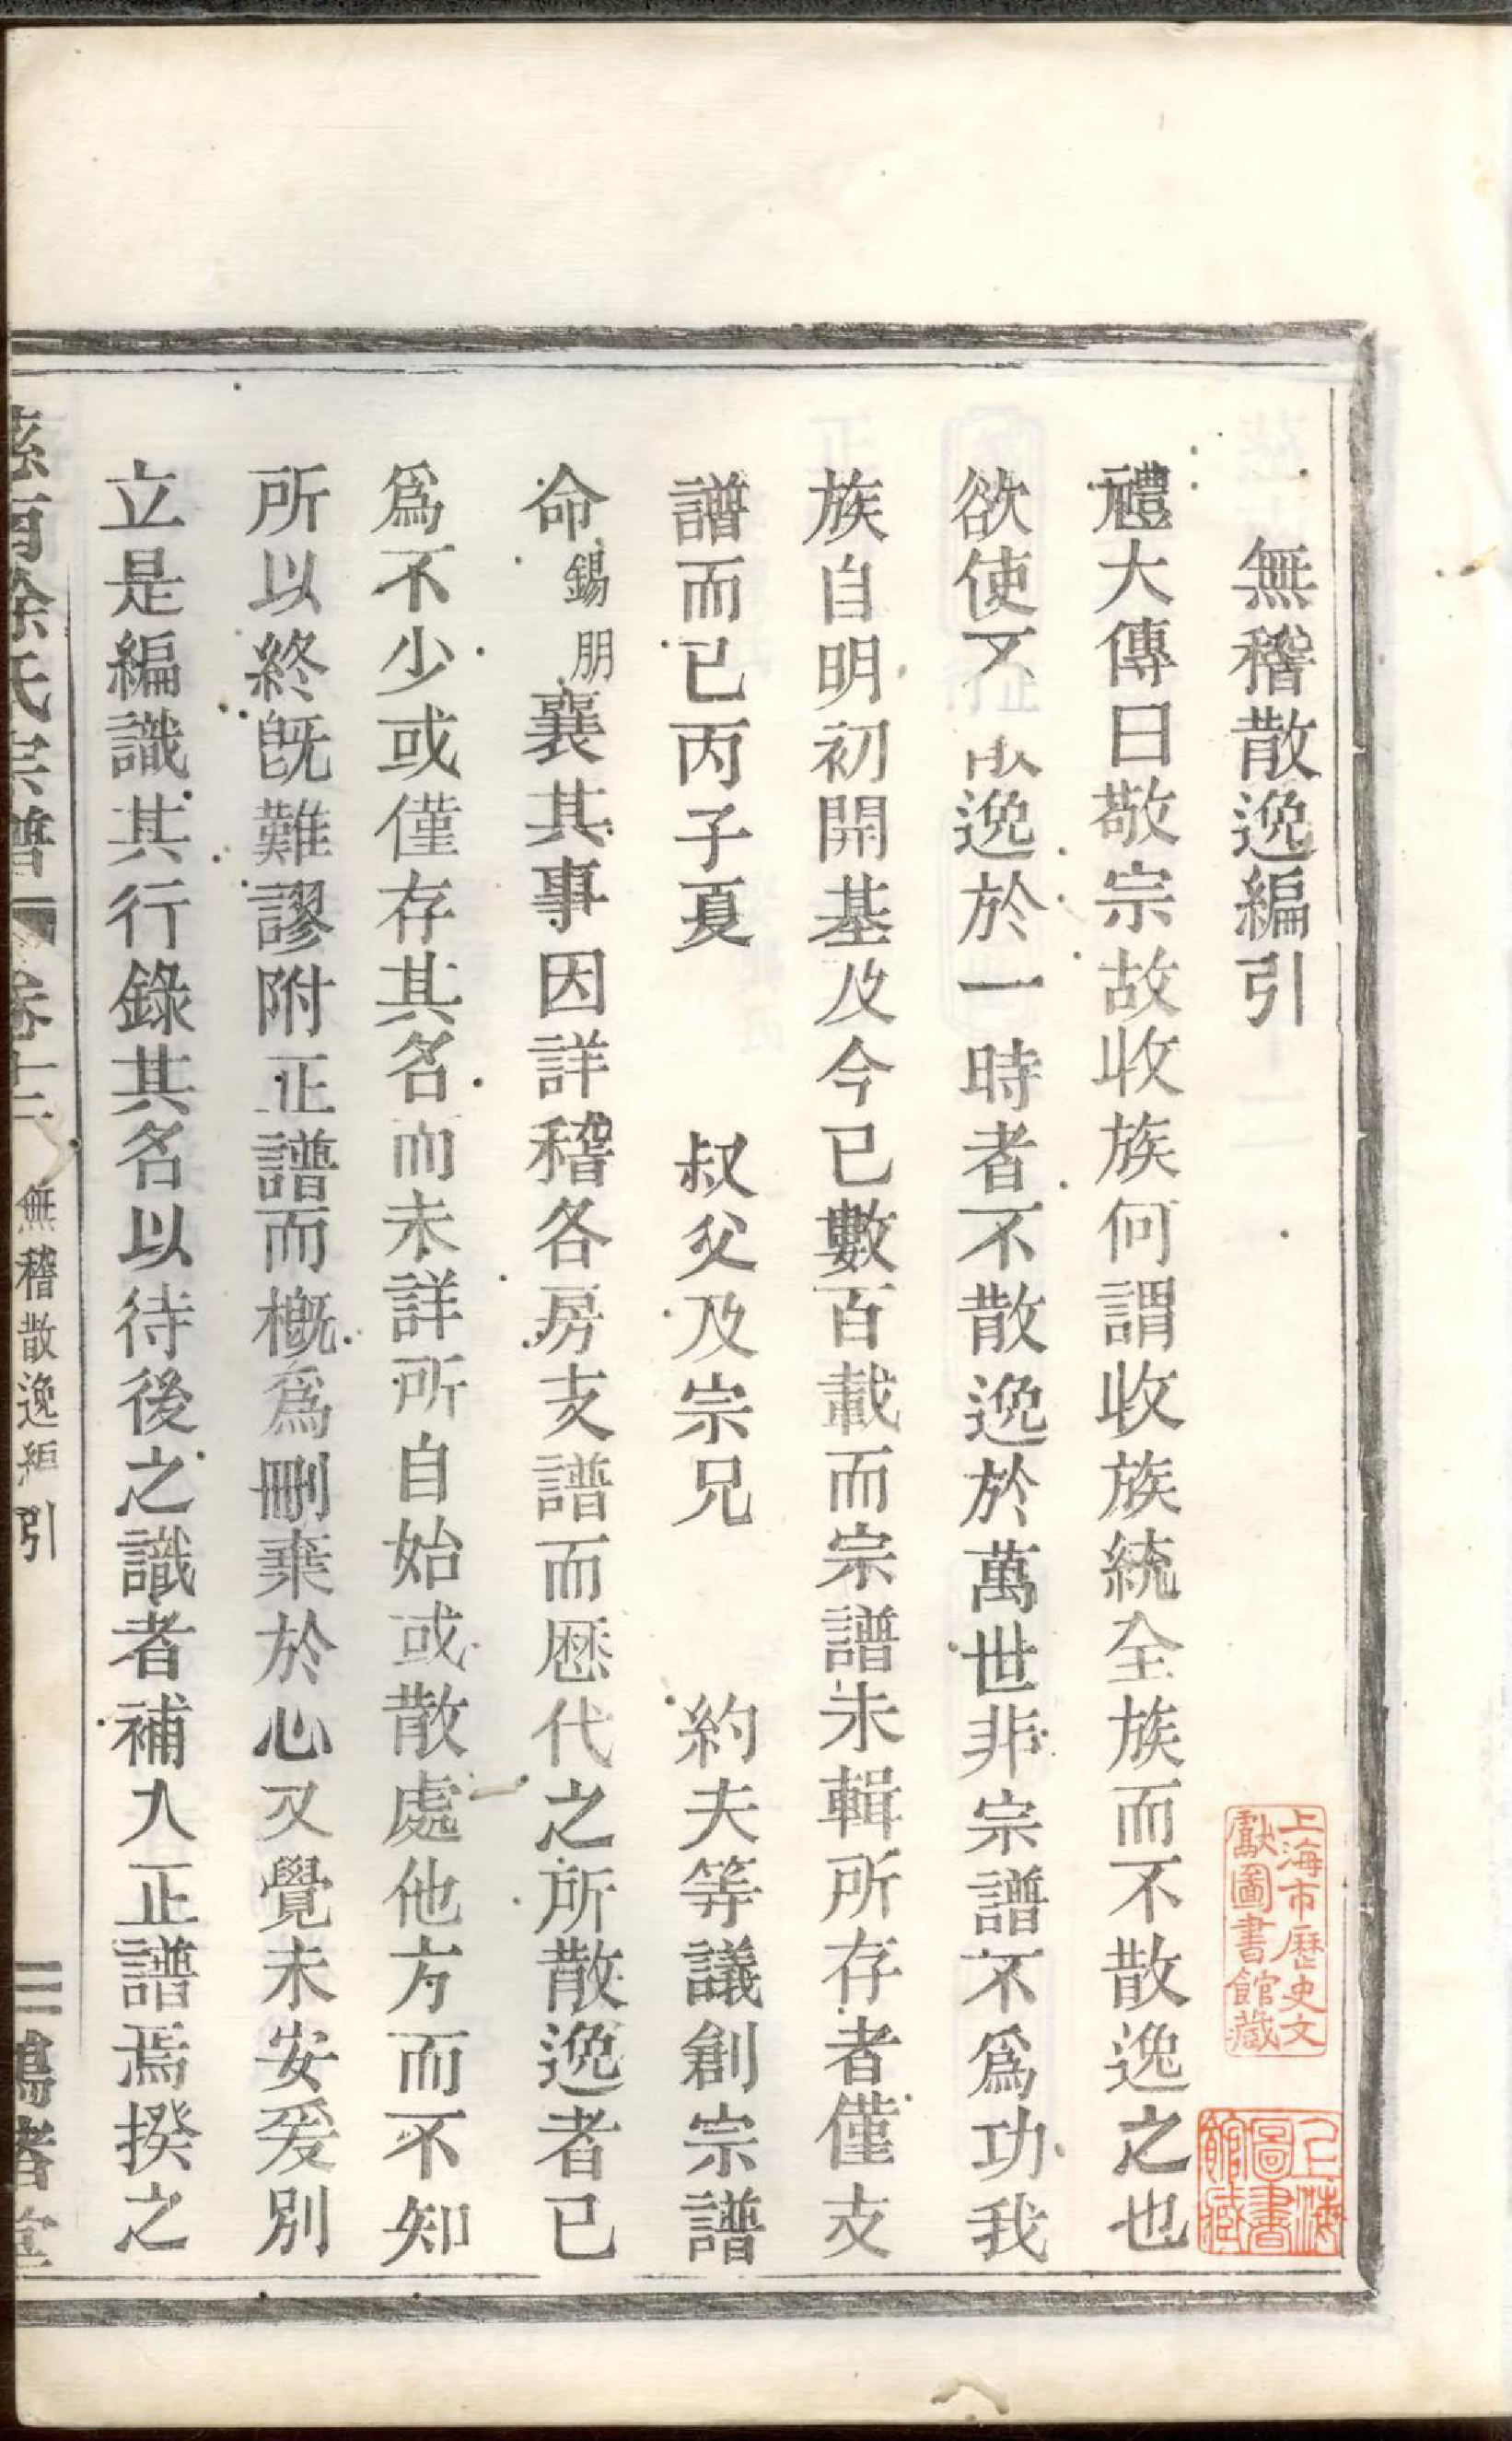 無稽散逸編引
禮大傳曰敬宗故收族何謂收族統全族而不散逸之也
欲使不散逸於一時者不散逸於萬世非宗譜不爲功我
族自明初開基及今已數百載而宗譜未輯所存者僅支
譜而已丙子夏 叔父及宗兄 約夫等議創宗譜
命錫朋襄其事因詳稽各房支譜而歷代之所散逸者已
爲不少或僅存其名而未詳所自始或散處他方而不知
所以終旣難謬附正譜而槪爲刪棄於心又覺未安爰別
立是編識其行錄其名以待後之識者補入正譜焉揆之
慈南徐氏宗譜 卷十二 無稽散逸編引 二
上海市歷史文
獻圖書館藏
上海
圖書
館藏